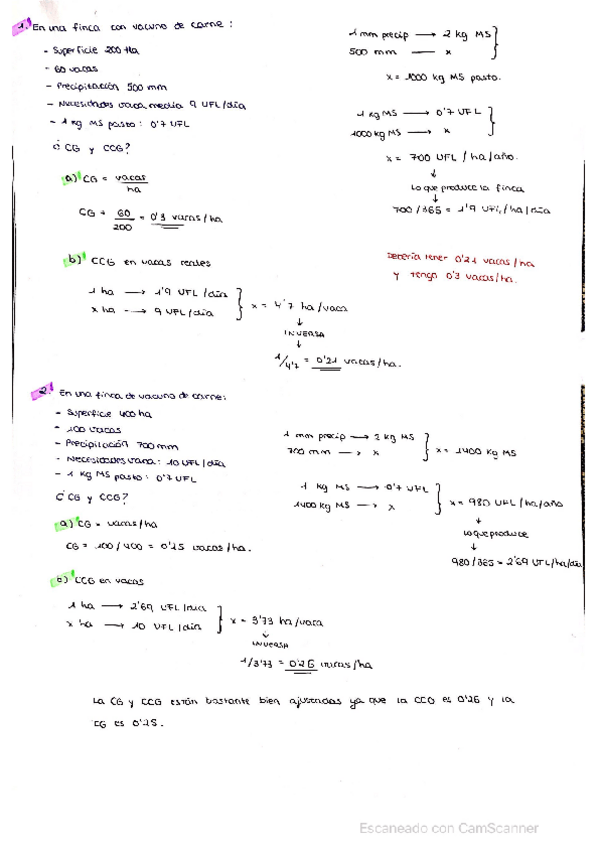 1. En una finca con vacuno de carne:
- Superficie 200 Ha
- 60 vacas
- Precipitación 500 mm
- Necesidades vaca media 9 UFL/día
- 1 kg MS pasto: 0'7 UFL
¿ CG y CCG?
a) CG = vacas/ha
CG = 60/200 = 0'3 vacas/ha
b) CCG en vacas reales
1 ha → 1'9 UFL/día
x ha → 9 UFL/día
x = 4'7 ha/vaca
↓
INVERSA
↓
1/4'7 = 0'21 vacas/ha.
1 mm precip → 2 kg MS
500 mm → x
x = 1000 kg MS pasto.
1 kg MS → 0'7 UFL
1000 kg MS → x
x = 700 UFL/ha/año.
↓
Lo que produce la finca
↓
700/365 = 1'9 UFL/ha/día
Debería tener 0'21 vacas/ha
y tengo 0'3 vacas/ha.
2. En una finca de vacuno de carne:
- Superficie 400 ha
- 100 vacas
- Precipitación 700 mm
- Necesidades vaca: 10 UFL/día
- 1 kg MS pasto: 0'7 UFL
¿ CG y CCG?
a) CG = vacas/ha
CG = 100/400 = 0'25 vacas/ha.
b) CCG en vacas
1 ha → 2'69 UFL/día
x ha → 10 UFL/día
x = 3'73 ha/vaca
↓
INVERSA
1/3'73 = 0'26 vacas/ha
1 mm precip → 2 kg MS
700 mm → x
x = 1400 kg MS
1 kg MS → 0'7 UFL
1400 kg MS → x
x = 980 UFL/ha/año
↓
Lo que produce
↓
980/365 = 2'69 UFL/ha/día
La CG y CCG están bastante bien ajustadas ya que la CCG es 0'26 y la
CG es 0'25.
Escaneado con CamScanner